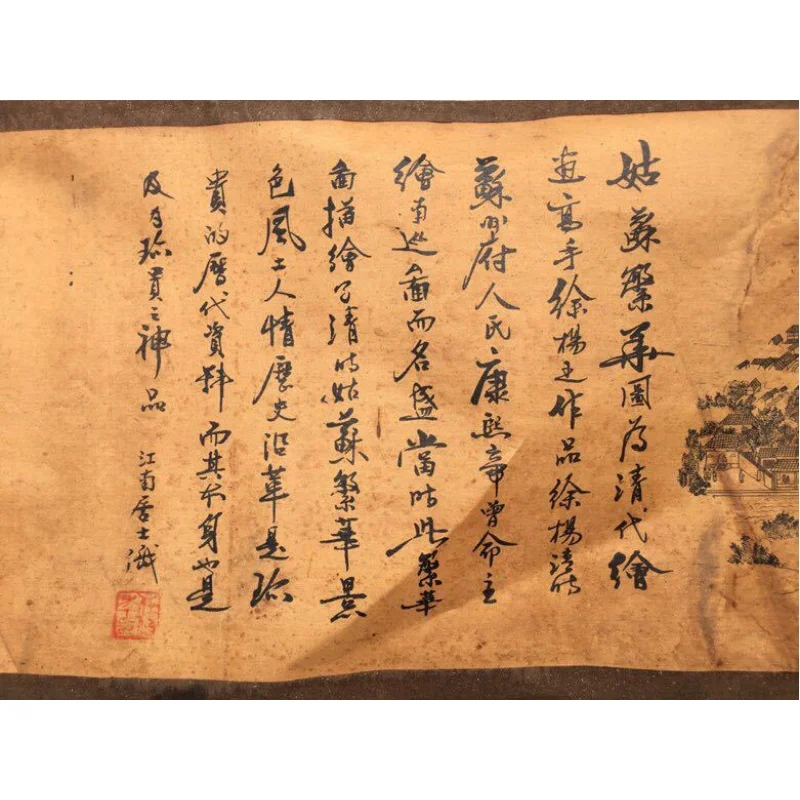 姑蘇繁華圖為清代繪
畫高手徐楊之作品徐楊清時
蘇州府人民康熙帝曾命主
繪南巡圖而名盛當時此繁華
圖描繪了清時姑蘇繁華景
色風土人情歷史沿革是珍
貴的曆代資料而其本身也是
及為珍貴之神品
江南居士識